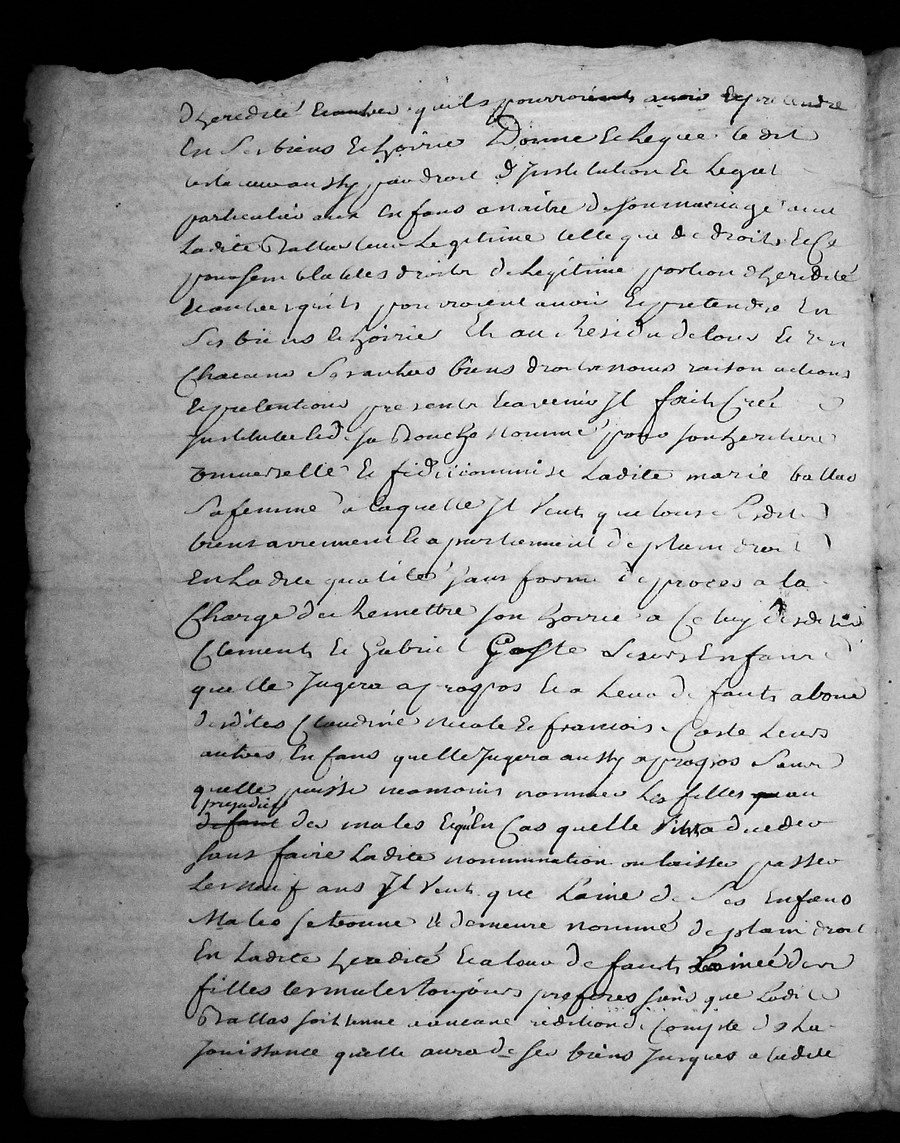 d'heredité et autres quils pourroient avoir et pretendre
En Ses biens Et hoirie Donne Et Legue ledit
testateur aussy par droit d'Institution Et Legat
particulier aux Enfans a naitre de son mariage avec
Ladite Ballas leur Legitime telle que de droit Et Ce
pour semblables droits de Legitime portion d'heredité
Et autres quils pourroient avoir Et pretendre En
Ses biens Et hoirie Et au Residu de tous Et Un
Chacuns Ses autres biens droits noms raison actions
Et pretentions presents Et avenir Il fait Créé
Institue Et de Sa Bouche Nomme pour son heritiere
universelle Et fideicommise Ladite marie ballas
Sa femme a laquelle Il Veut que tous Sesdits
biens aviennent Et apartiennent de plain droit
En Ladite qualité sans forme de proces a la
Charge de Remettre son hoirie a Celuy desdits
Clements Et Gabriel Coste Leurs Enfans
quelle Jugera apropos Et a Leur defaut a lune
desdites Claudine nicole Et francois Coste Leurs
autres Enfans quelle Jugera aussy apropos Sans
quelle puisse neamoins nommer Les filles au
prejudice
defaut des males Et qu'En Cas quelle Vint a deceder
sans faire Ladite nommination ou laisser passer
Les neuf ans Il Veut que Lainé de Ses Enfans
Males se trouve Et demeure nommé de plain droit
En Ladite heredité Et a leur defaut Lainée des
filles les males toujours preferes sans que Ladite
Ballas soit tenue a aucune redition de Compte de La
Jouissance quelle aura de Ses biens Jusques a ladite